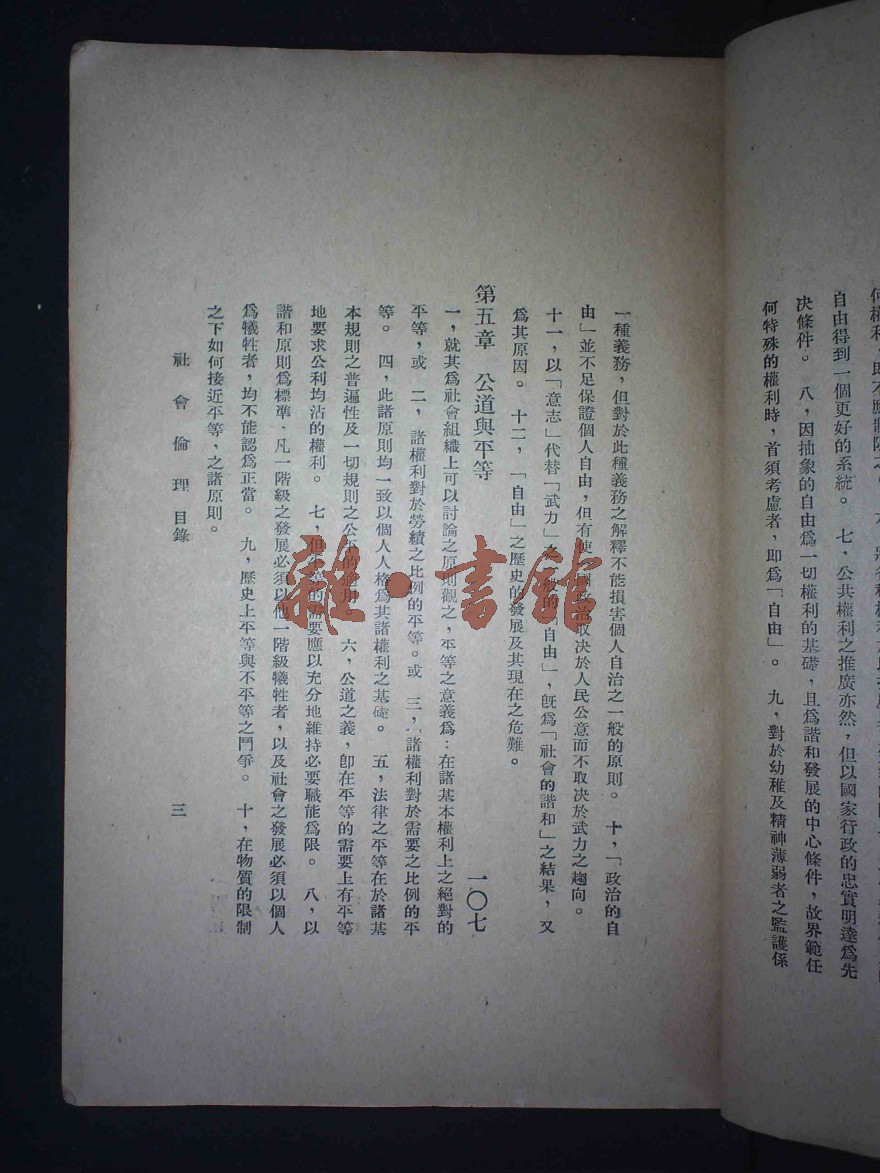 自由得到一個更好的系統。 七，公共權利之推廣亦然，但以國家行政的忠實明達爲先
決條件。 八，因抽象的自由爲一切權利的基礎，且爲諧和發展的中心條件，故界範任
何特殊的權利時，首須考慮者，即爲「自由」。 九，對於幼稚及精神薄弱者之監護係
一種義務，但對於此種義務之解釋不能損害個人自治之一般的原則。 十，「政治的自
由」並不足保證個人自由，但有使 國政治取決於人民公意而不取決於武力之趨向。
十一，以「意志」代替「武力」之 的「自由」，旣爲「社會的諧和」之結果，又
爲其原因。 十二，「自由」之歷史的發展及其現在之危難。
第五章 公道與平等 一〇七
一，就其爲社會組織上可以討論之原則觀之，平等之意義爲：在諸基本權利上之絕對的
平等，或 二，諸權利對於勞績之比例的平等。或 三，諸權利對於需要之比例的平
等。 四，此諸原則均一致以個人人格爲其諸權利之基礎。 五，法律之平等在於諸基
本規則之普遍性及一切規則之公平的適用。 六，公道之義，卽在平等的需要上有平等
地要求公利均沾的權利。 七，但平等的需要應以充分地維持必要職能爲限。 八，以
諧和原則爲標準，凡一階級之發展必須以他一階級犧牲者，以及社會之發展必須以個人
爲犧牲者，均不能認爲正當。 九，歷史上平等與不平等之鬥爭。 十，在物質的限制
之下如何接近平等，之諸原則。
社會倫理 目錄 三
雜·書館